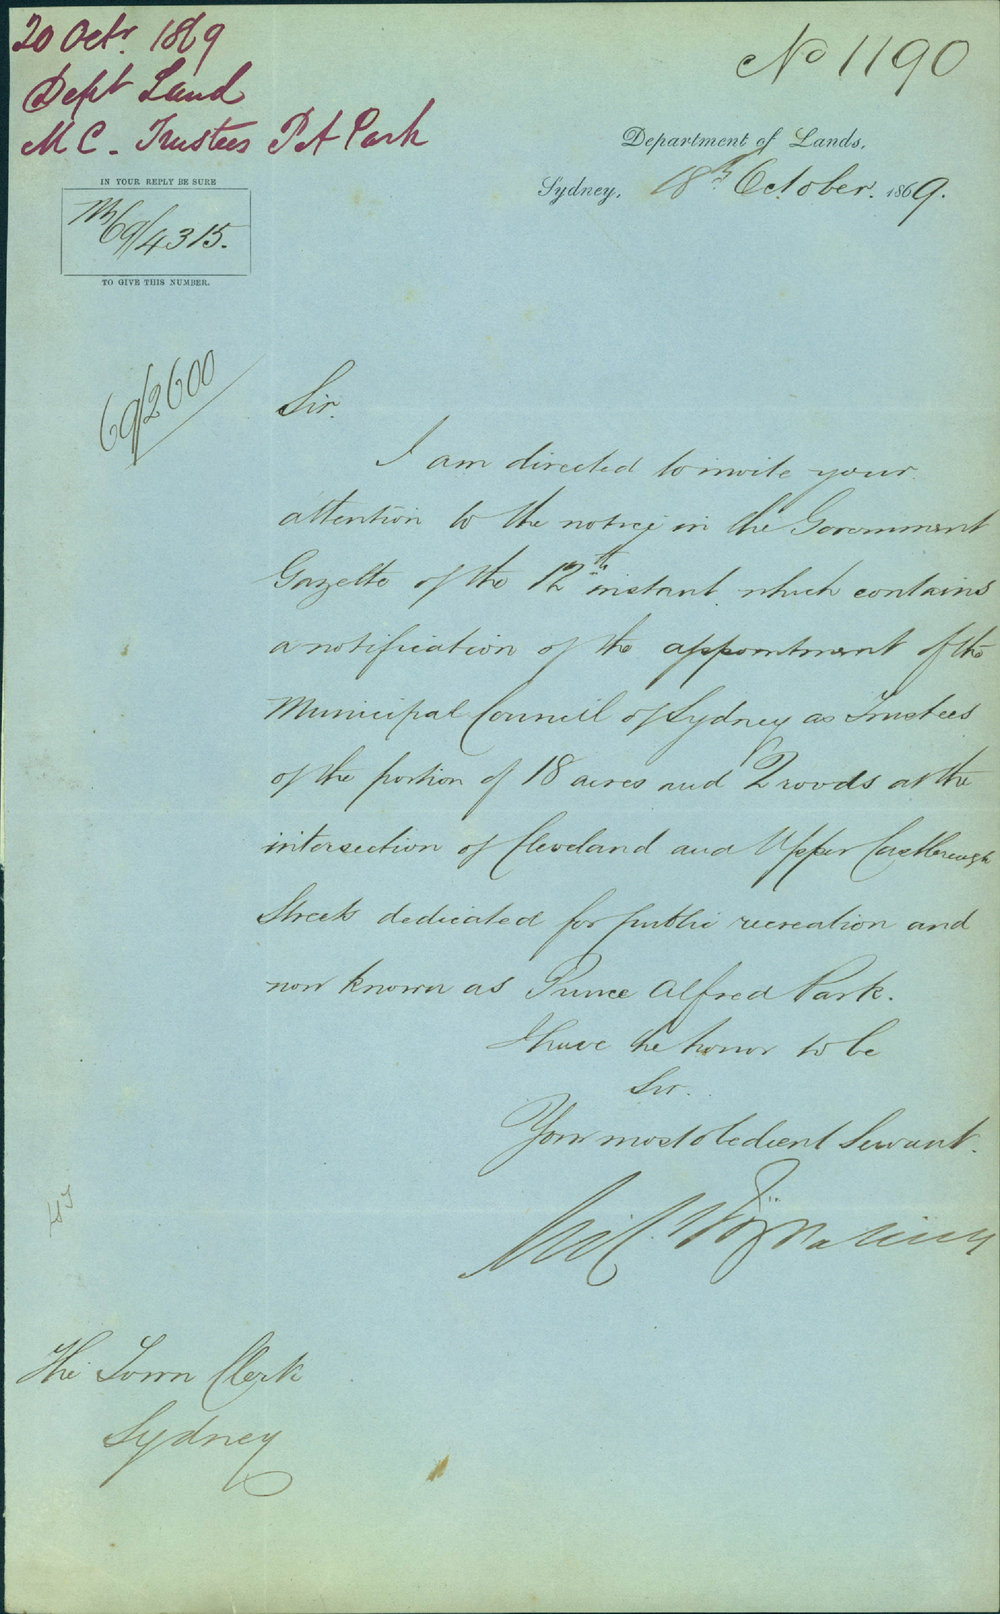 20 Octr. 1869
Dept Land
M C - Trustees P A Park
No 1190
Department of Lands,
Sydney, 18th October. 1869.
IN YOUR REPLY BE SURE
M 69/4315.
TO GIVE THIS NUMBER.
69/2600
Sir.
I am directed to invite your
attention to the notice in the Government
Gazette of the 12th instant which contains
a notification of the appointment of the
Municipal Council of Sydney as Trustees
of the portion of 18 acres and 2 roods at the
intersection of Cleveland and Upper Castlereagh
Streets dedicated for public recreation and
now known as Prince Alfred Park.
I have the honor to be
Sir.
Your most obedient Servant.
The Town Clerk
Sydney